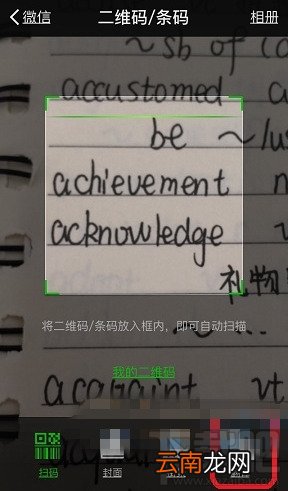 微信 二维码/条码 相册
~sb of
accustomed
be ~/us
achievement
acknowledge
礼物
将二维码/条码放入框内，即可自动扫描
~...
我的二维码
acquaint vt
扫码 封面
云南龙网